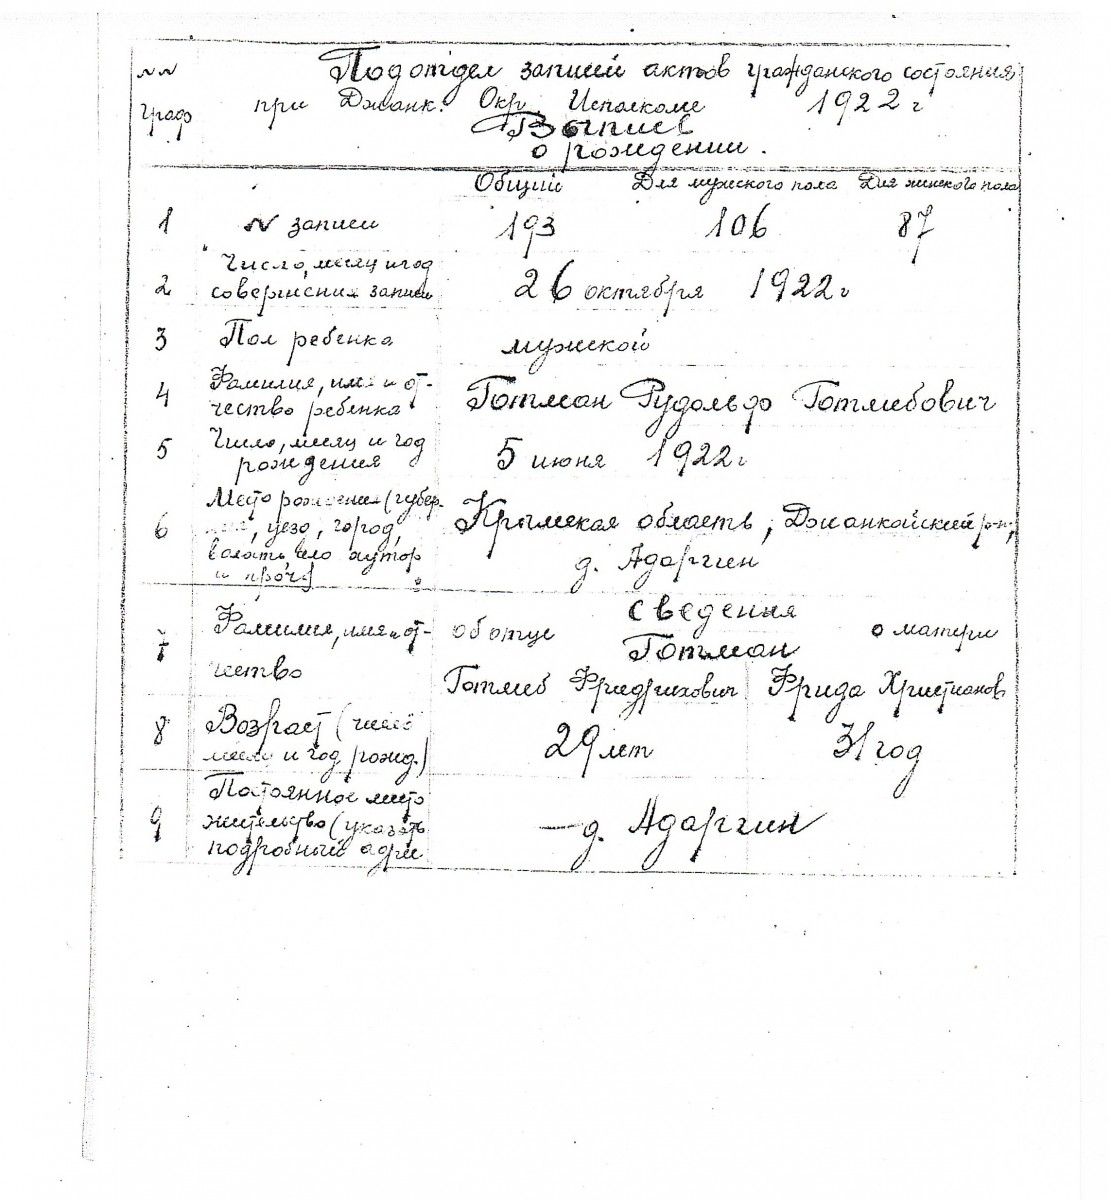 №№ Подотдел записей актов гражданского состояния
граф при Джанк. Окр Исполкоме 1922 г
Выпись
о рождении.
Общий Для мужского пола Для женского пола
1 № записи 193 106 87
Число, месяц и год
2 совершения записи 26 октября 1922 г
3 Пол ребенка мужской
Фамилия, имя и от-
4 чество ребенка Готман Рудольф Готлибович
Число, месяц и год
5 рождения 5 июня 1922 г
Место рождения (губер-
6 уезд, город, Крымская область, Джанкойский р-н,
волость село хутор д. Адаргин
и проч)
сведения
7 Фамилия, имя и от- об отце о матери
Готман
чество Готлиб Фридрихович Фрида Христианов
8 Возраст (число 29 лет 31 год
месяц и год рожд.)
Постоянное место
9 жительство (указать — д. Адаргин
подробный адрес